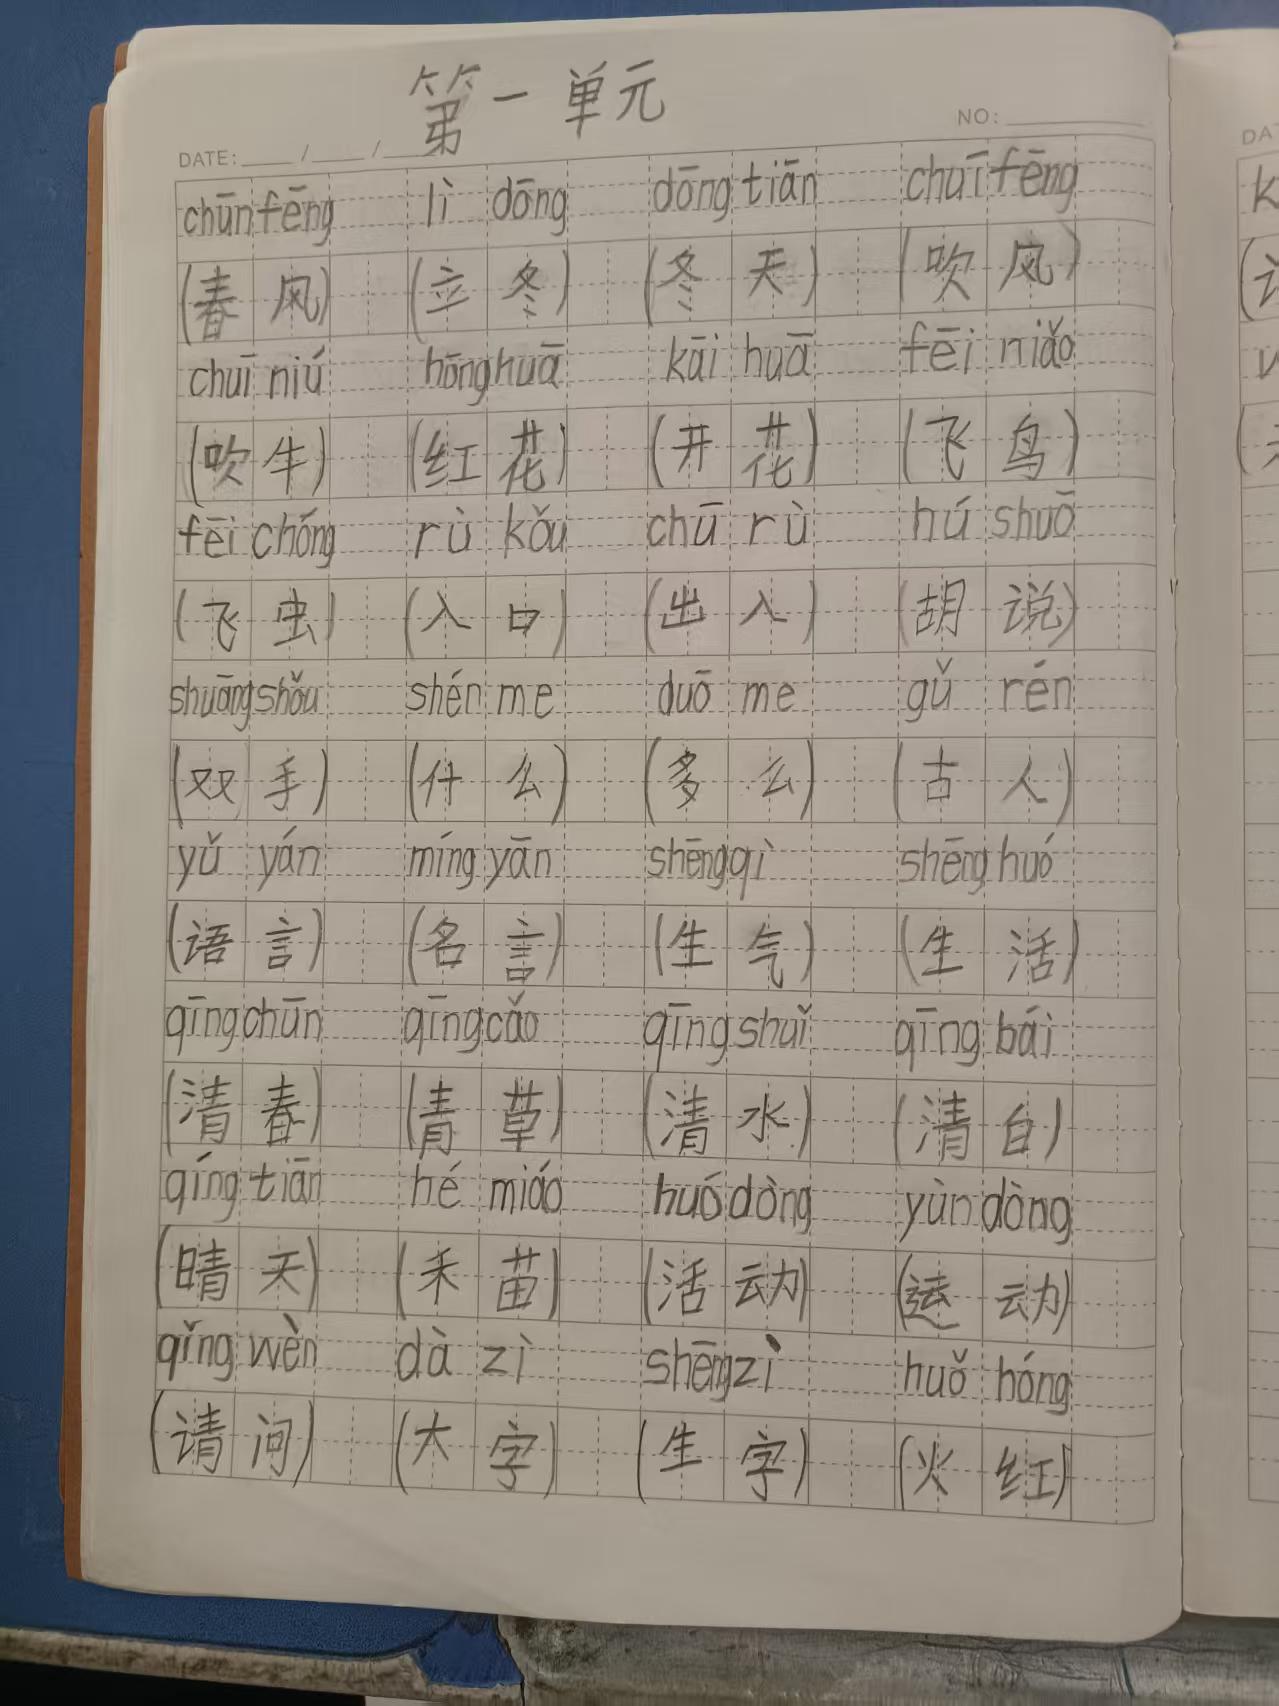 第一单元
DATE: / /
NO:
chūn fēng lì dōng dōng tiān chuī fēng
(春风) (立冬) (冬天) (吹风)
chuī niú hōng huā kāi huā fēi niǎo
(吹牛) (红花) (开花) (飞鸟)
fēi chóng rù kǒu chū rù hú shuō
(飞虫) (入口) (出入) (胡说)
shuāng shǒu shén me duō me gǔ rén
(双手) (什么) (多么) (古人)
yǔ yán míng yān shēng qì shēng huó
(语言) (名言) (生气) (生活)
qīng chūn qīng cǎo qīng shuǐ qīng bái
(清春) (青草) (清水) (清白)
qíng tiān hé miáo huó dòng yùn dòng
(晴天) (禾苗) (活动) (运动)
qǐng wèn dà zì shēng zì huǒ hóng
(请问) (大字) (生字) (火红)